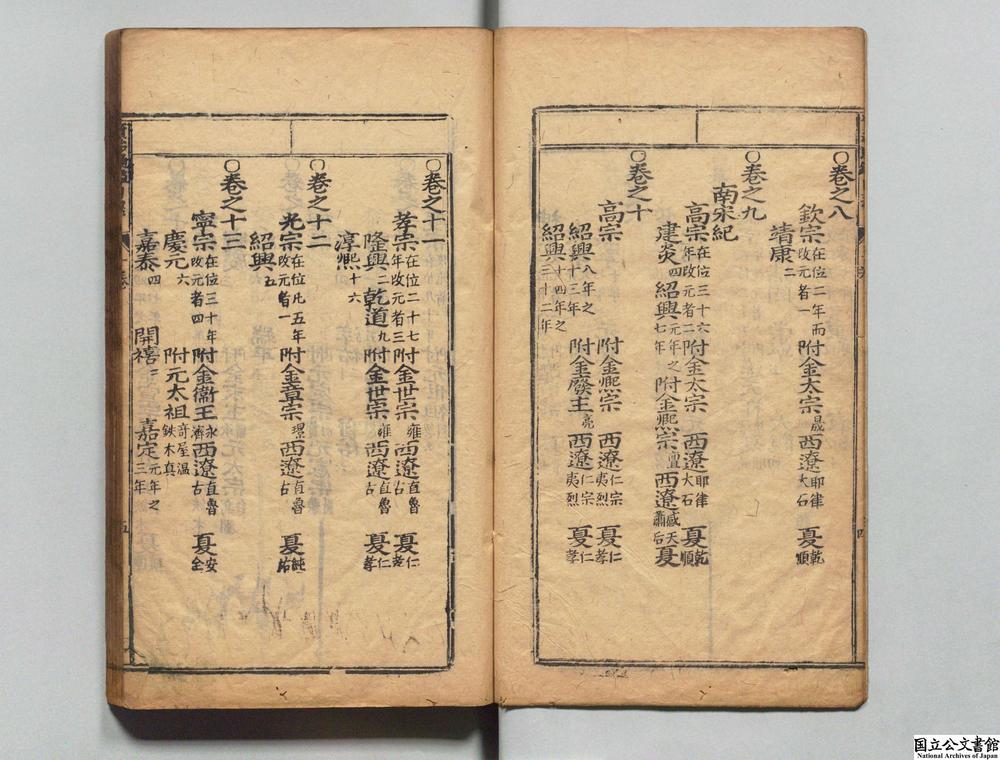 ○卷之八
欽宗在位二年而改元者一 附金太宗晟 西遼耶律大石 夏乾順
靖康二
○卷之九
南宋紀
高宗在位三十六年改元者二 附金太宗 西遼大石 夏乾順
建炎四 紹興元年之七年 附金熙宗亶 西遼感天蕭后 夏
○卷之十
高宗 紹興八年之十三年 附金熙宗 西遼仁宗夷烈 夏仁孝
紹興十四年之三十二年 附金廢主亮 西遼仁宗夷烈 夏仁孝
四
○卷之十一
孝宗在位二十七年改元者三 附金世宗雍 西遼直魯古 夏仁孝
隆興二 乾道九 附金世宗雍 西遼直魯古 夏仁孝
淳熙十六
○卷之十二
光宗在位凡五年改元者一 附金章宗璟 西遼直魯古 夏純祐
紹興五
○卷之十三
寧宗在位三十年改元者四 附金衛王永濟 西遼直魯古 夏安全
慶元六 附元太祖奇屋溫鉄木真
嘉泰四 開禧三 嘉定元年之三年
五
国立公文書館
National Archives of Japan